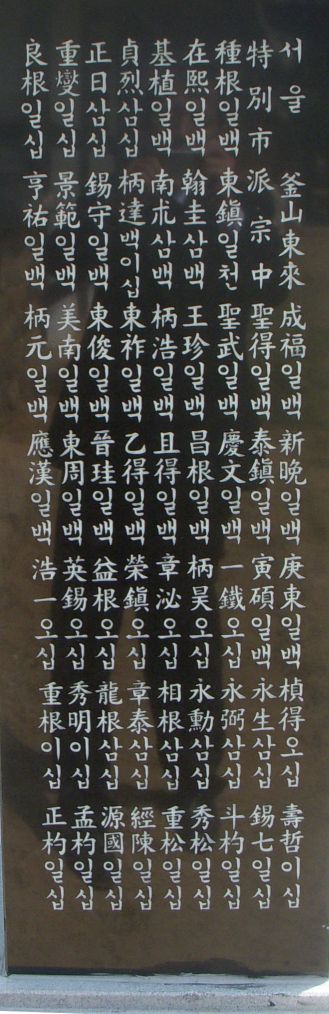 서울 釜山東來 成福일백 新晩일백 庚東일백 楨得오십 壽哲이십
特別市派宗中 聖得일백 泰鎭일백 寅碩일백 永生삼십 錫七일십
種根일백 東鎭일천 聖武일백 慶文일백 一鐵오십 永弼삼십 斗杓일십
在熙일백 翰圭삼백 王珍일백 昌根일백 柄昊오십 永勳삼십 秀松일십
基植일백 南朮삼백 柄浩일백 且得일백 章泌오십 相根삼십 重松일십
貞烈삼십 柄達백이십 東祚일백 乙得일백 榮鎭오십 章泰삼십 經陳일십
正日삼십 錫守일백 東俊일백 晉珪일백 益根오십 龍根삼십 源國일십
重燮일십 景範일백 美南일백 東周일백 英錫오십 秀明이십 孟杓일십
良根일십 亨祐일백 柄元일백 應漢일백 浩一오십 重根이십 正杓일십